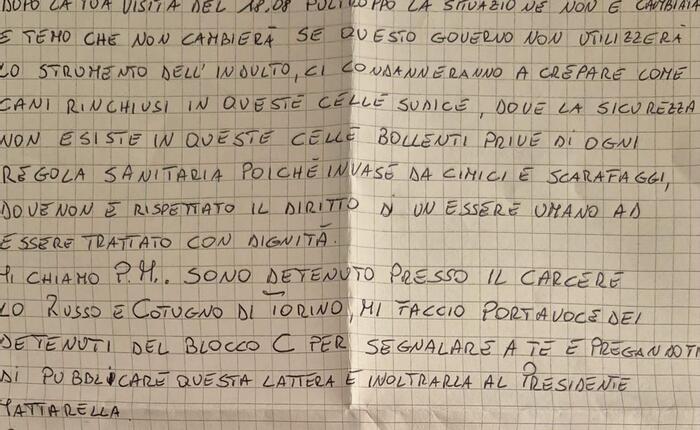 DOPO LA TUA VISITA DEL 18.08 PURTROPPO LA SITUAZIONE NON È CAMBIATA
E TEMO CHE NON CAMBIERÀ SE QUESTO GOVERNO NON UTILIZZERÀ
LO STRUMENTO DELL'INDULTO, CI CONDANNERANNO A CREPARE COME
CANI RINCHIUSI IN QUESTE CELLE SUDICE, DOVE LA SICUREZZA
NON ESISTE IN QUESTE CELLE BOLLENTI PRIVE DI OGNI
REGOLA SANITARIA POICHÈ INVASE DA CIMICI E SCARAFAGGI,
DOVE NON È RISPETTATO IL DIRITTO DI UN ESSERE UMANO AD
ESSERE TRATTATO CON DIGNITÀ.
MI CHIAMO P.M.. SONO DETENUTO PRESSO IL CARCERE
LO RUSSO E COTUGNO DI TORINO, MI FACCIO PORTAVOCE DEI
DETENUTI DEL BLOCCO C PER SEGNALARE A TE E PREGANDOTI
DI PUBBLICARE QUESTA LATTERA E INOLTRARLA AL PRESIDENTE
MATTARELLA